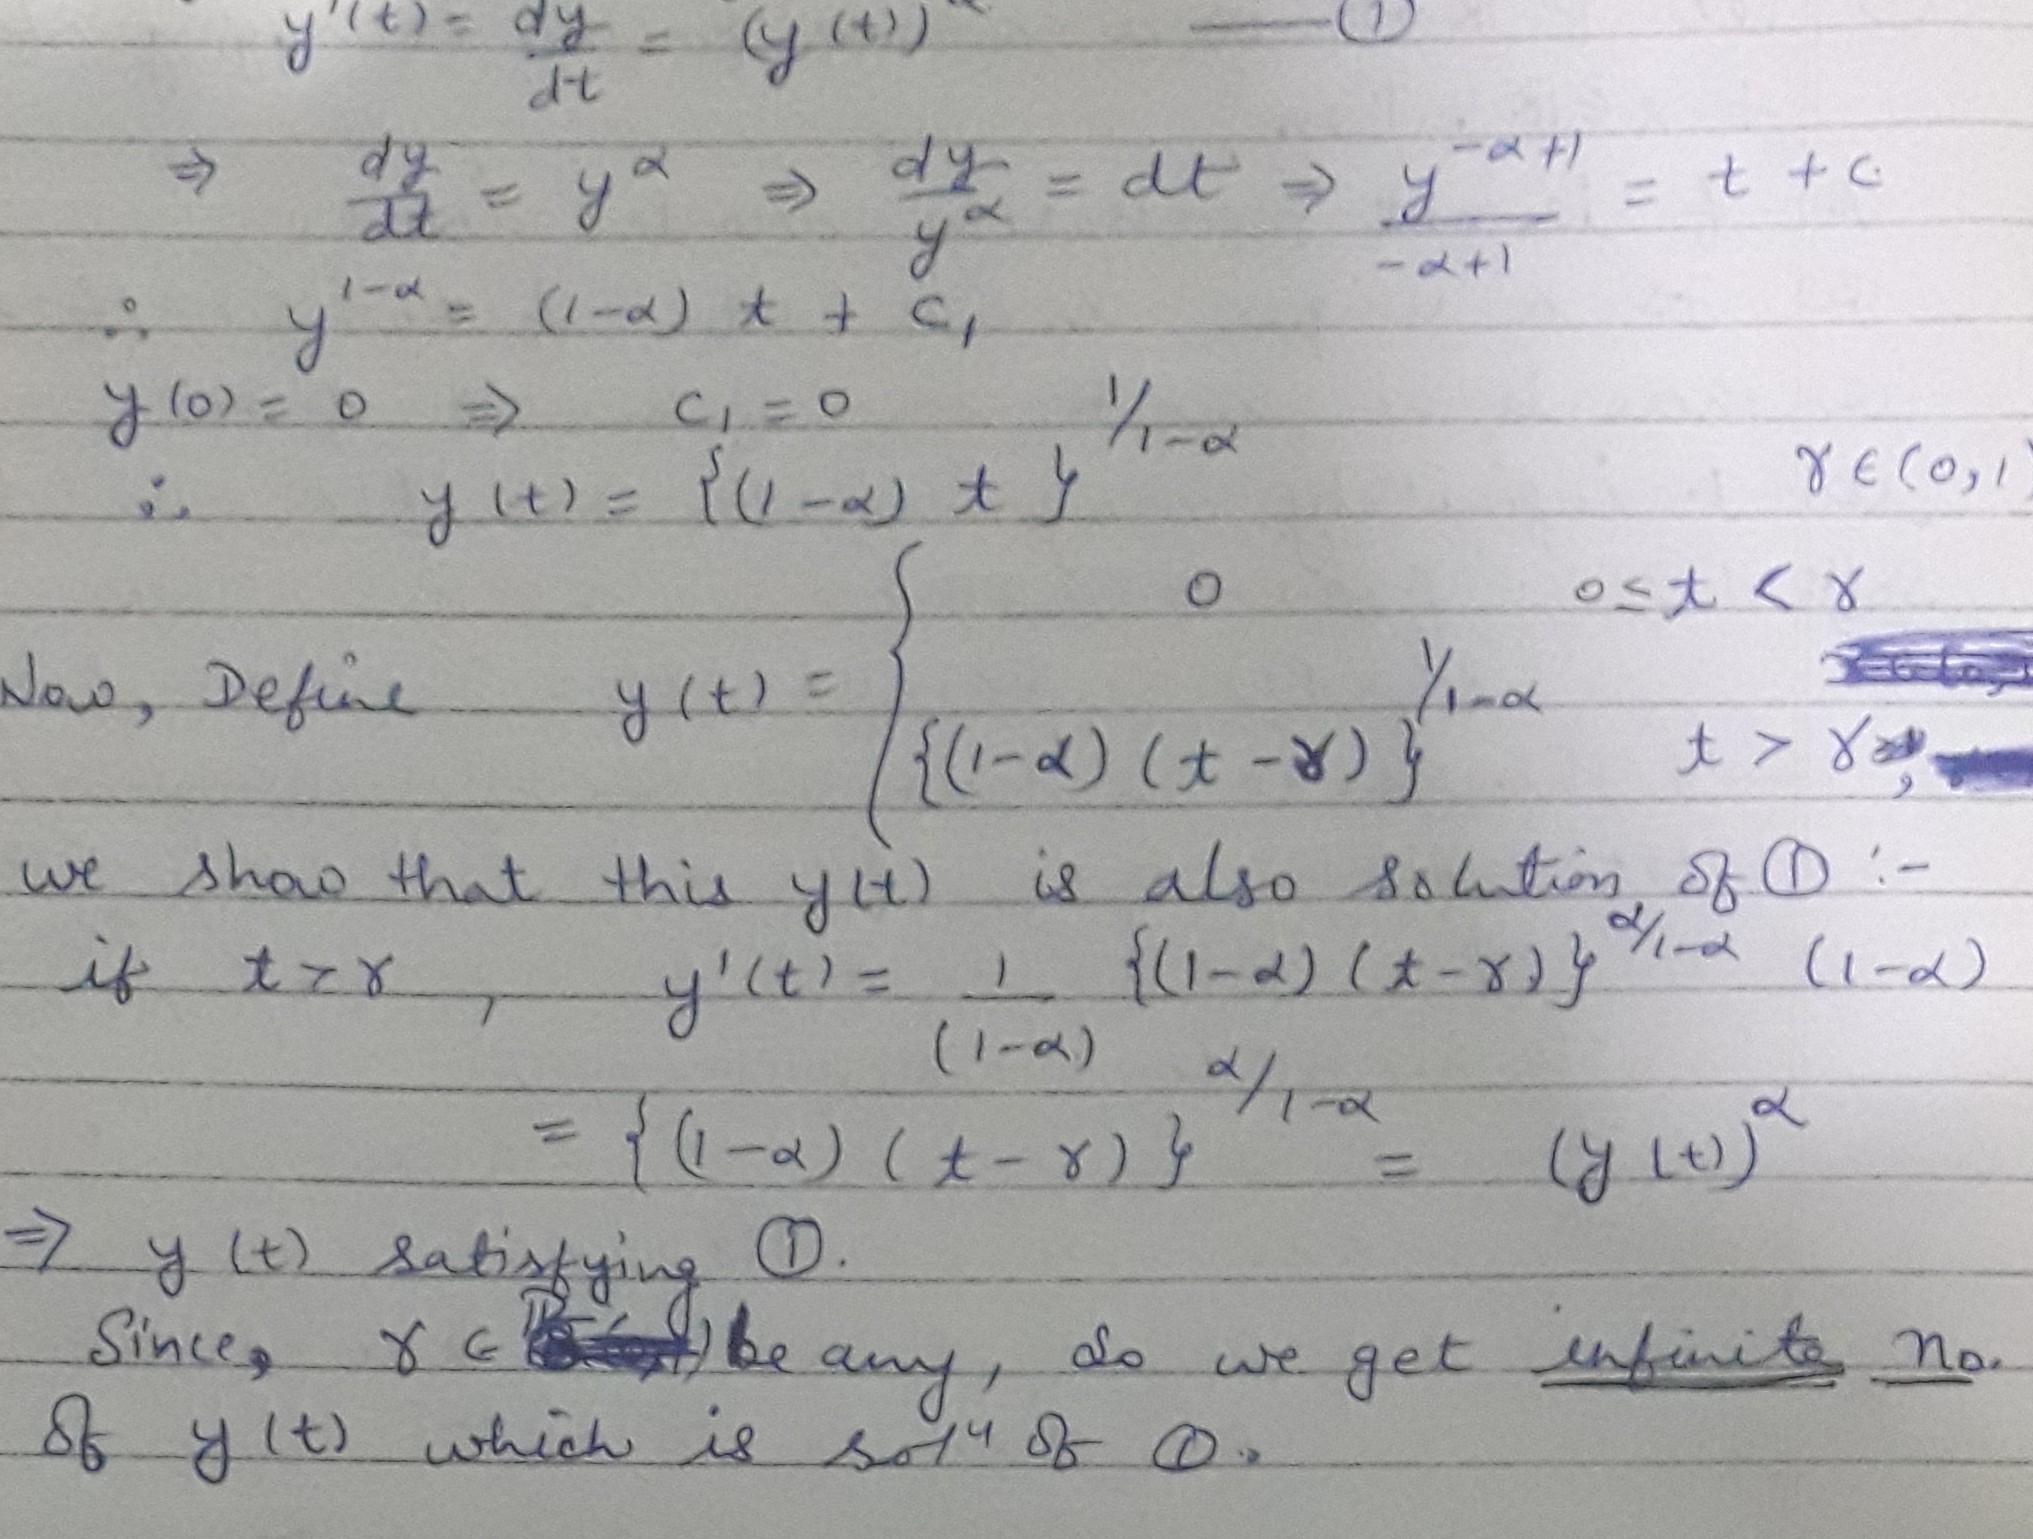 y'(t) = dy/dt = (y(t))^α —— ①
⇒ dy/dt = y^α ⇒ dy/y^α = dt ⇒ y^(-α+1)/(-α+1) = t + c
∴ y^(1-α) = (1-α) t + c₁
y(0) = 0 ⇒ c₁ = 0
∴ y(t) = {(1-α) t}^(1/1-α) γ ∈ (0,1)
0 0 ≤ t < γ
Now, Define y(t) = {
{(1-α) (t-γ)}^(1/1-α) t > γ,
we show that this y(t) is also solution of ① :-
if t > γ, y'(t) = 1/(1-α) {(1-α) (t-γ)}^(α/1-α) (1-α)
= {(1-α) (t-γ)}^(α/1-α) = (y(t))^α
⇒ y(t) satisfying ①.
Since, γ ∈ be any, so we get infinite no.
of y(t) which is solⁿ of ①.